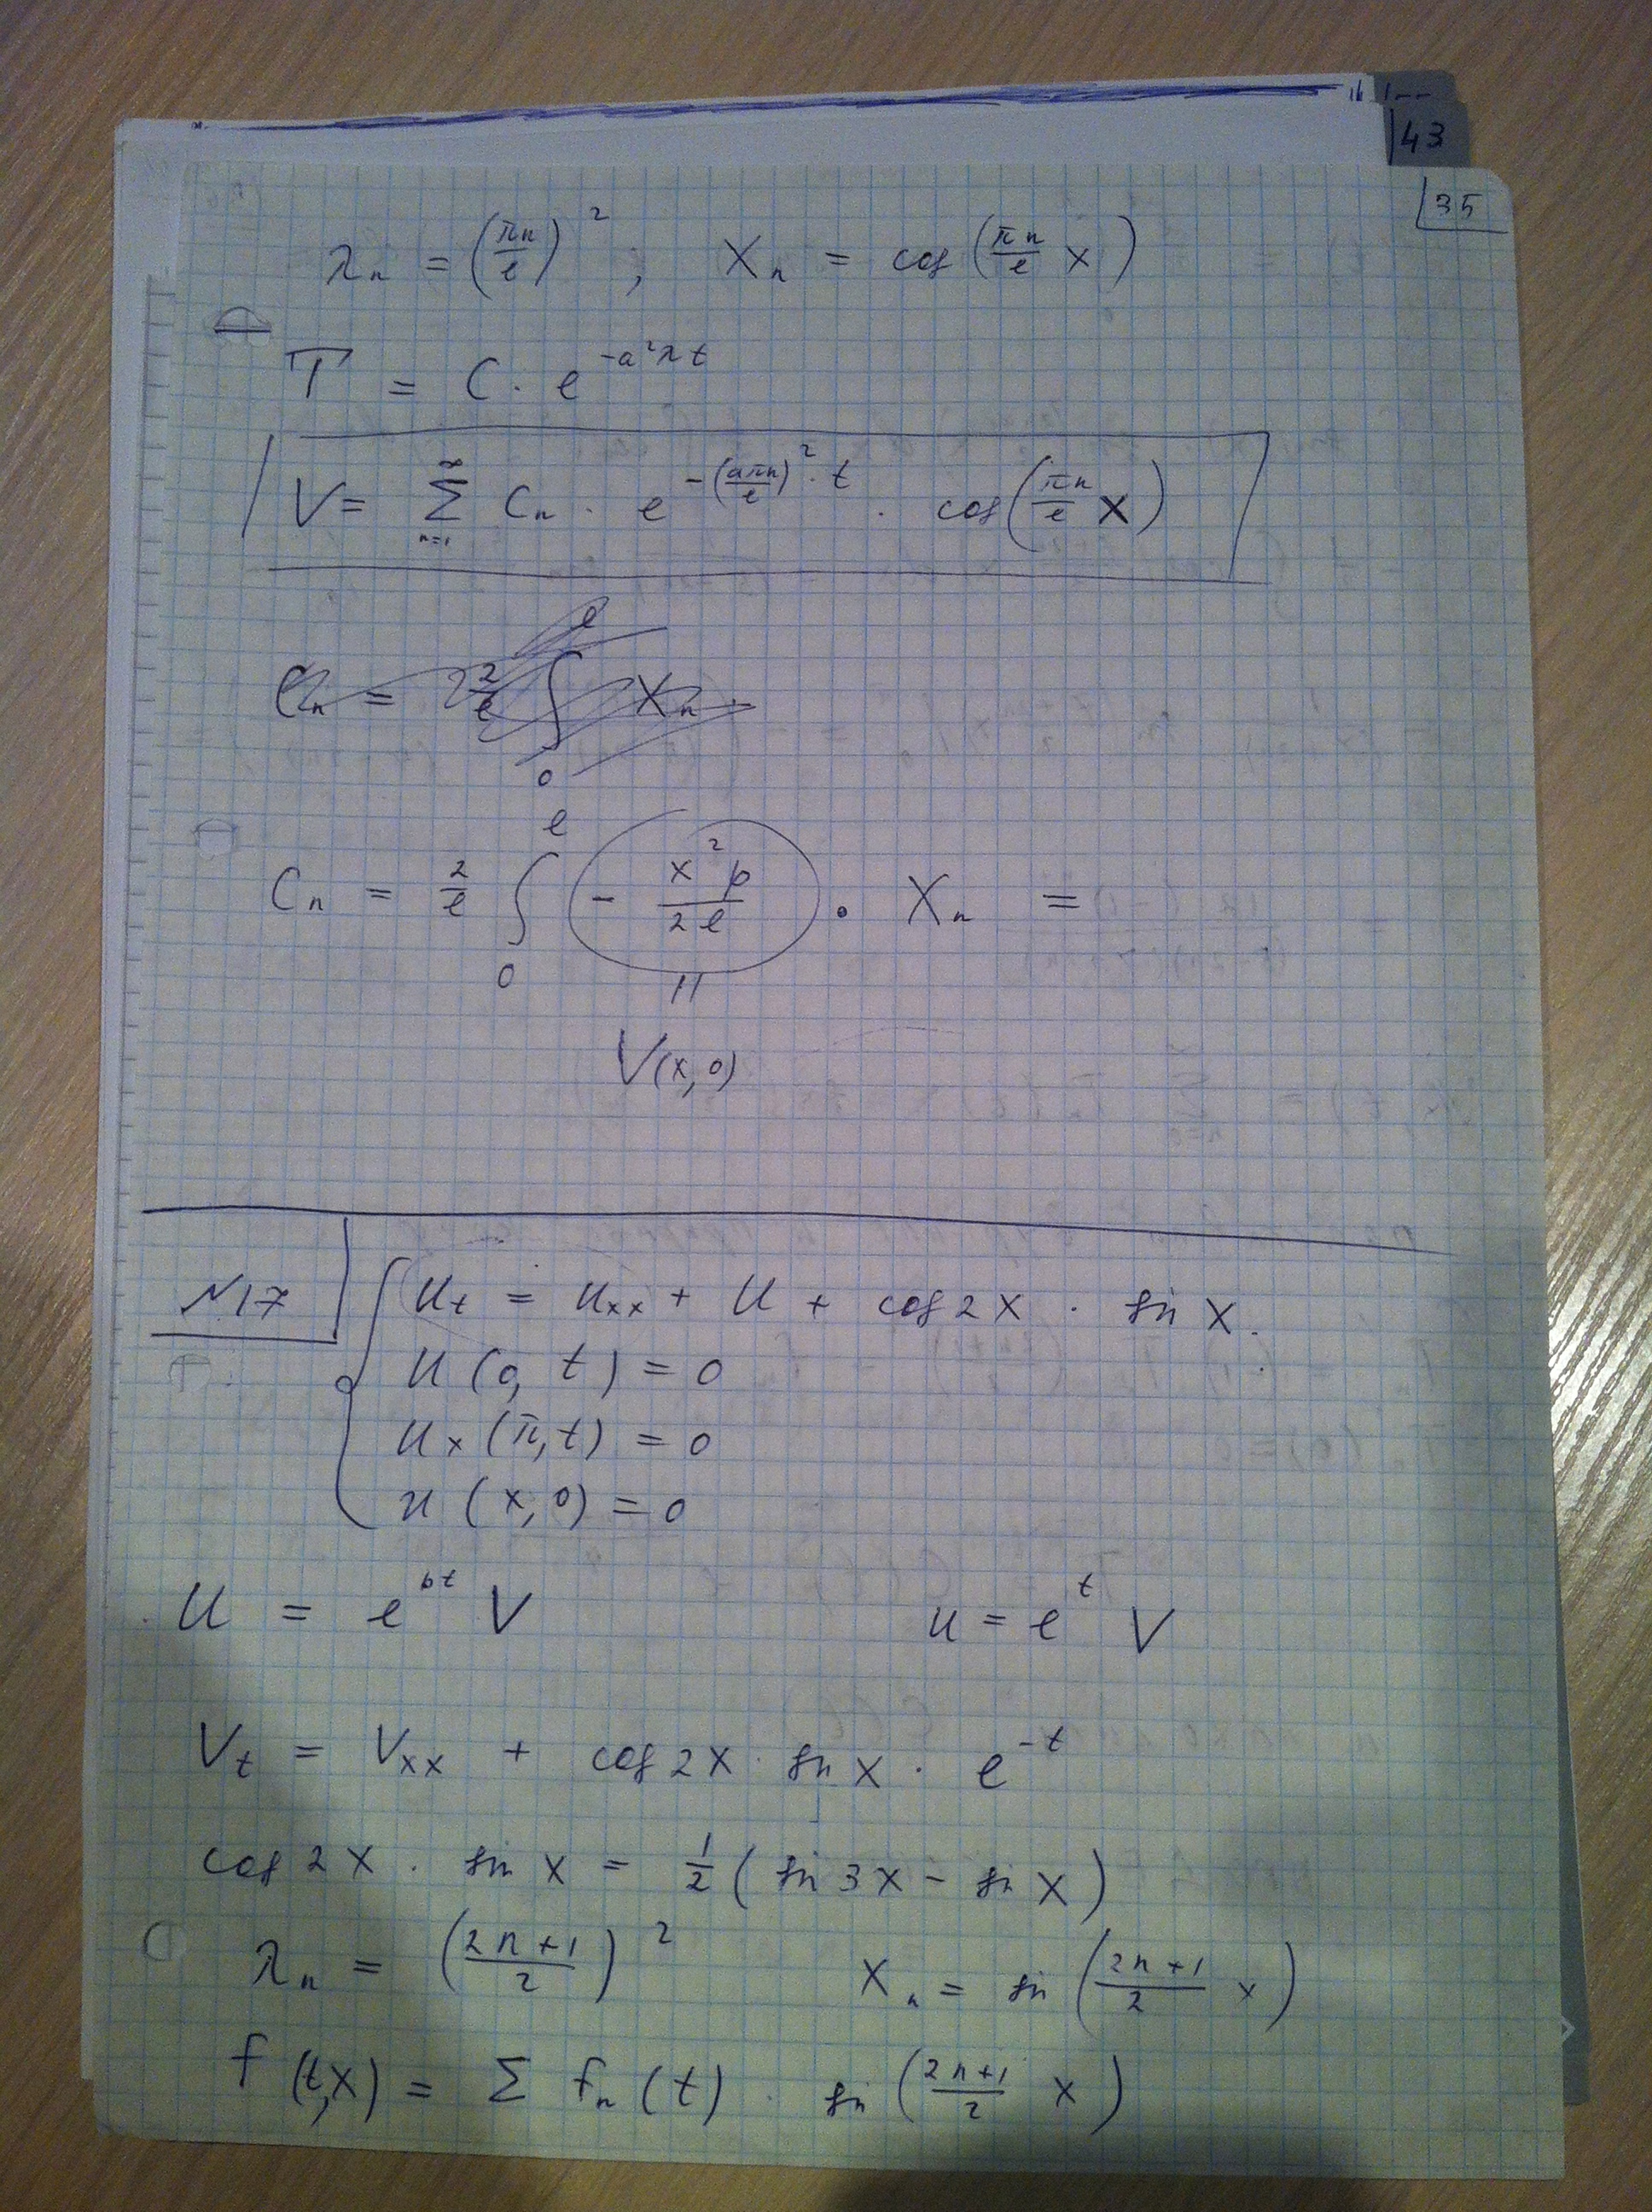 43
35
λₙ = (πn/ℓ)² ; Xₙ = cos(πn/ℓ x)
T = C · e^(-a²λt)
V = Σ_{n=1}^{∞} Cₙ · e^(-(aπn/ℓ)² · t) · cos(πn/ℓ x)
Cₙ = 2/ℓ ∫₀^ℓ Xₙ
Cₙ = 2/ℓ ∫₀^ℓ (- x²p/2ℓ) · Xₙ =
V(x,0)
N17
uₜ = uₓₓ + u + cos2x · sin x.
u(0, t) = 0
uₓ(π, t) = 0
u(x, 0) = 0
u = e^(bt) V u = e^t V
Vₜ = Vₓₓ + cos2x · sin x · e^(-t)
cos2x · sin x = 1/2 (sin 3x - sin x)
λₙ = ((2n+1)/2)² Xₙ = sin((2n+1)/2 x)
f(t,x) = Σ fₙ(t) · sin((2n+1)/2 x)